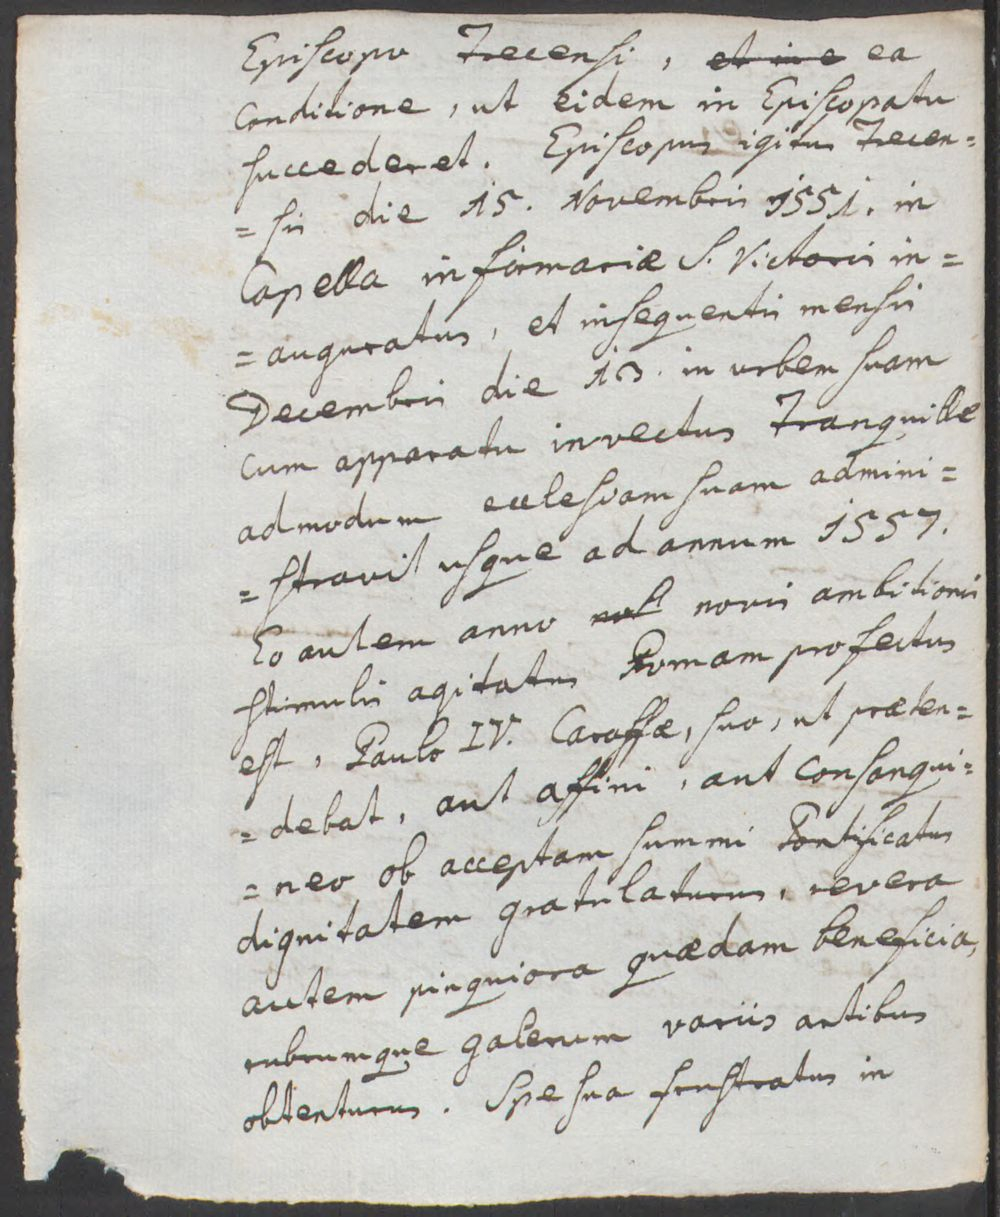 Episcopo Trecensi, et in e ea
conditione, ut eidem in Episcopatu
succederet. Episcopus igitur Trecen=
=sis die 15. Novembris 1551. in
Capella infirmariæ S. Victoris in=
=auguratus, et insequentis mensis
Decembris die 13. in urbem suam
cum apparatu invectus Tranquille
admodum ecclesiam suam admini=
=stravit usque ad annum 1557.
Eo autem anno novis ambitionis
stimulis agitatus Romam profectus
est, Paulo IV. Caraffæ, suo, ut præten=
=debat, aut affini, aut consangui=
=neo ob acceptam summi Pontificatus
dignitatem gratulaturus, revera
autem pinguiora quædam beneficia,
rubrumque galerum variis artibus
obtenturus. Spe sua frustratus in